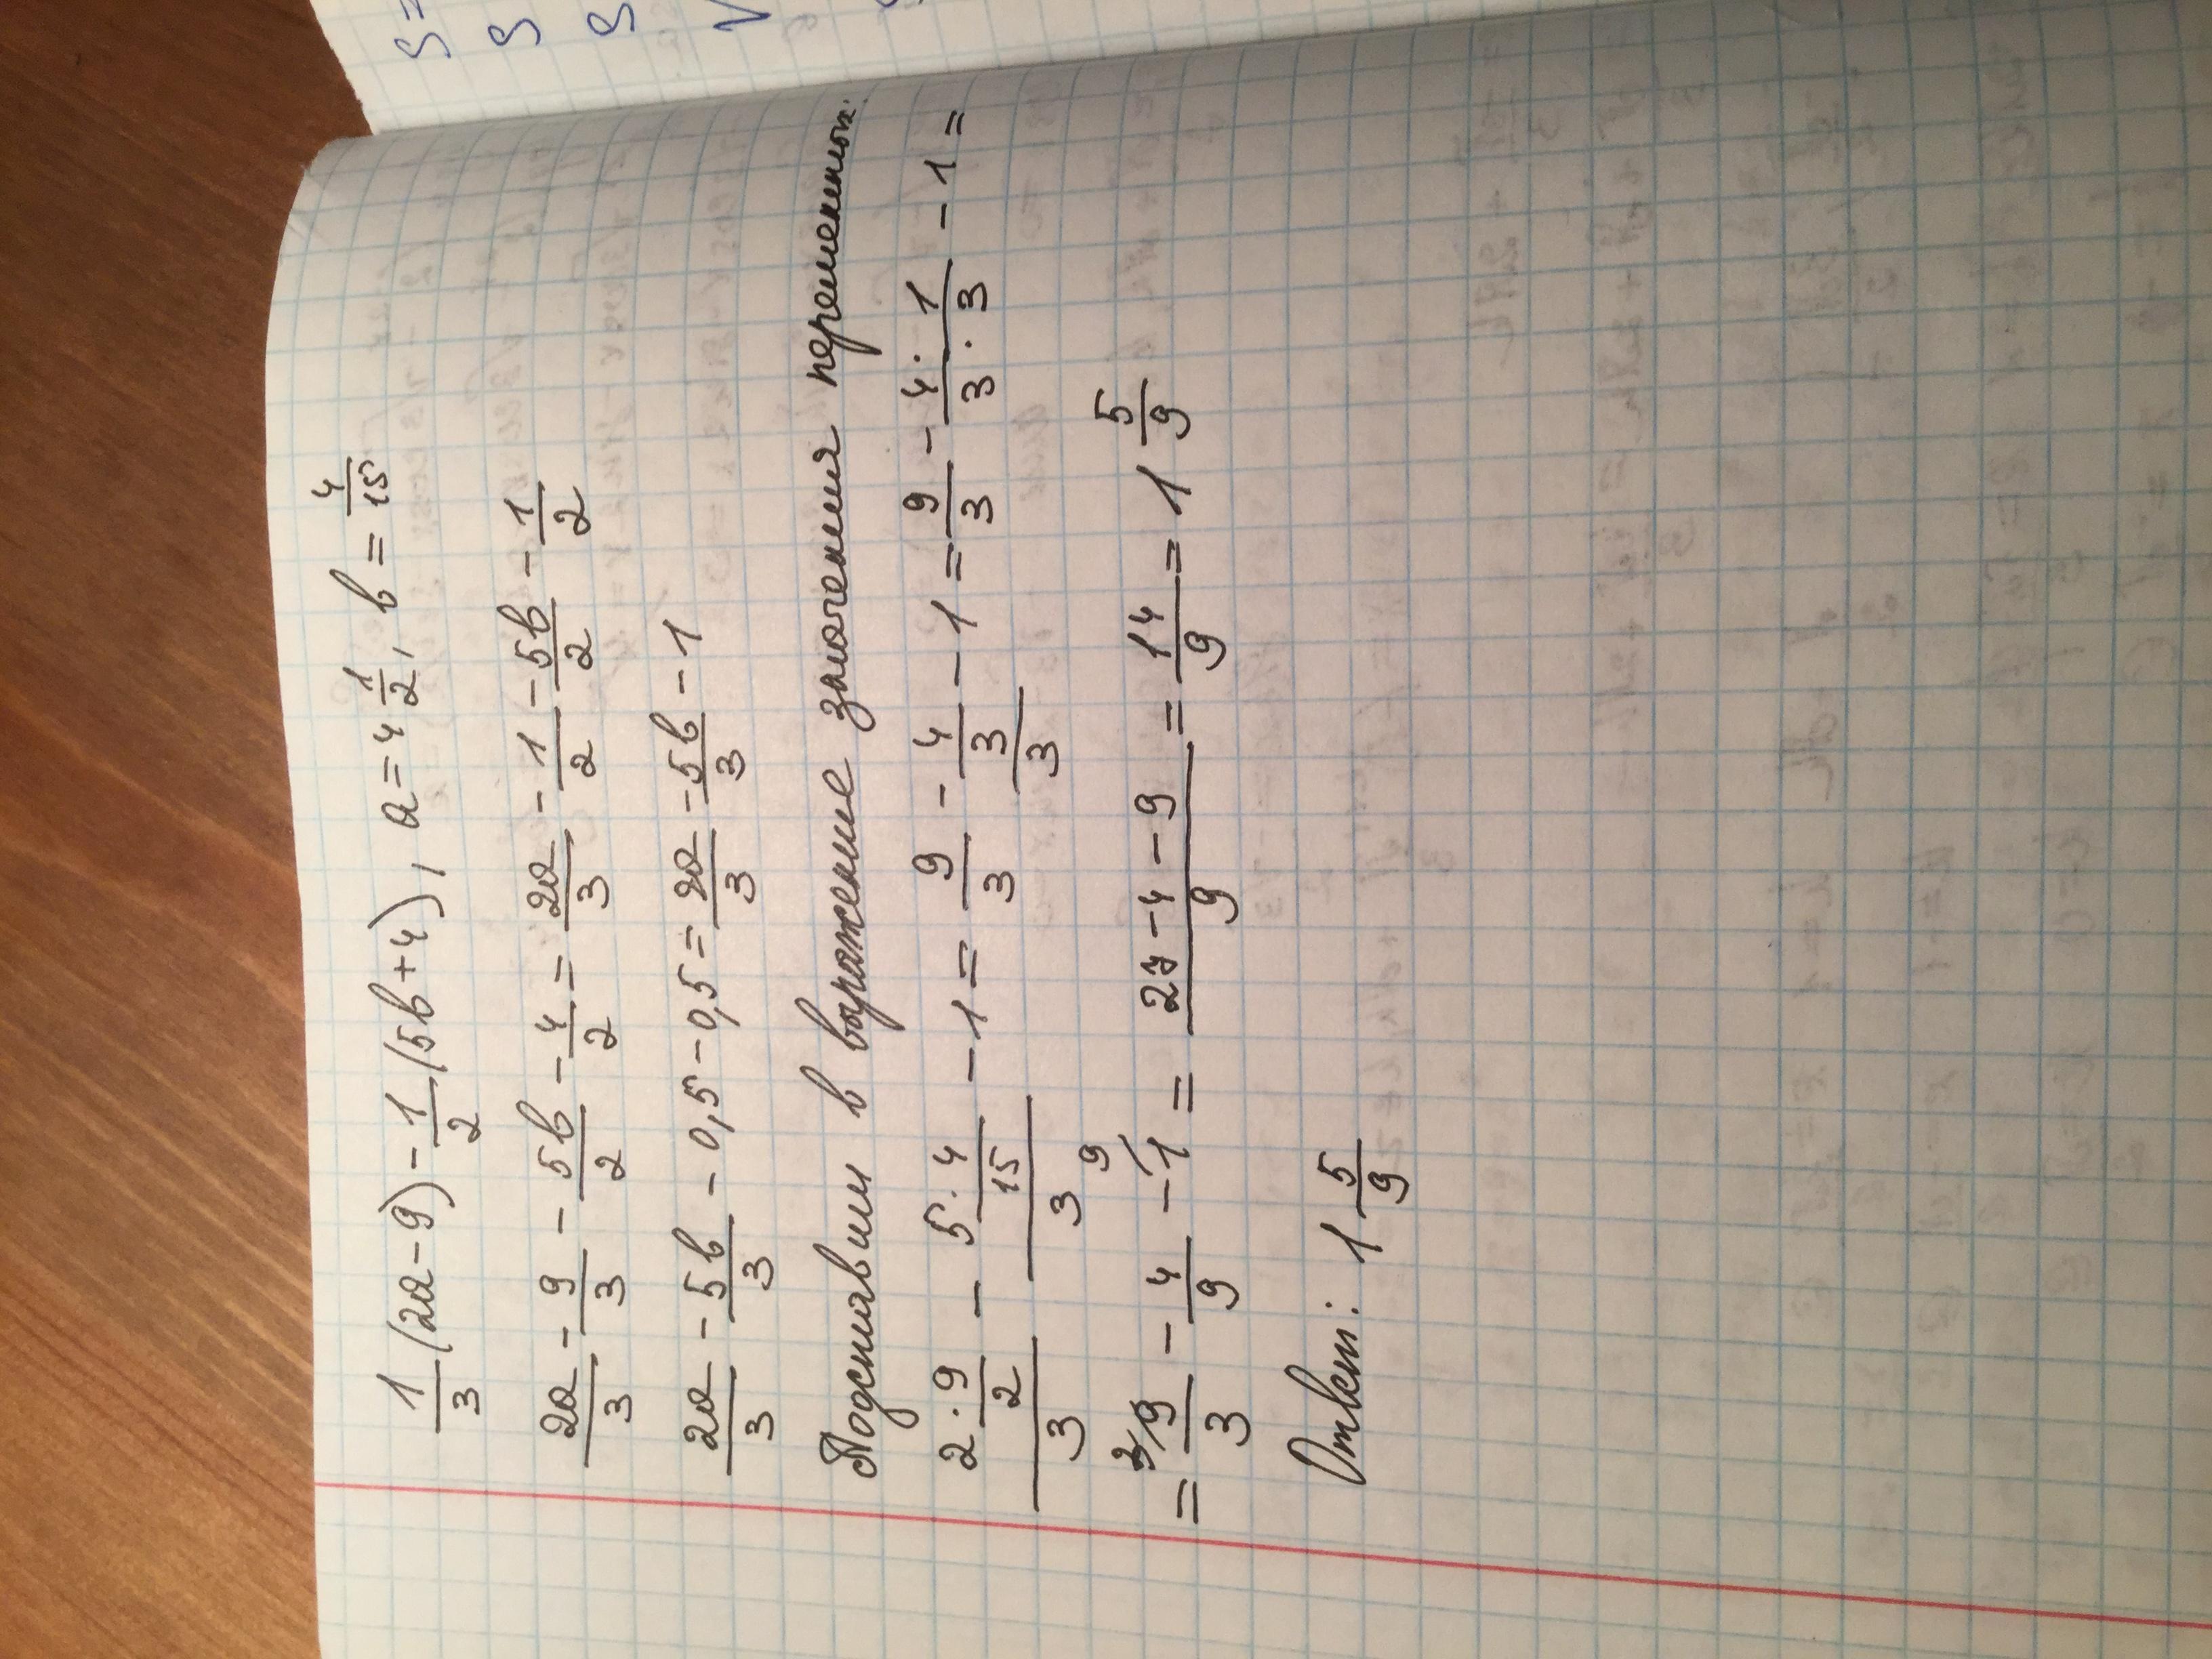 1/3 (2a-9) - 1/2 (5b+4), a = 4 1/2, b = 4/15
2a/3 - 9/3 - 5b/2 - 4/2 = 2a/3 - 1/2 - 5b/2 - 1/2
2a/3 - 5b/3 - 0,5 - 0,5 = 2a/3 - 5b/3 - 1
Подставим в выражение значения переменных:
(2 · 9/2)/3 - (5 · 4/15)/3 - 1 = 9/3 - (4/3)/3 - 1 = 9/3 - 4/3 · 1/3 - 1 =
= 9/3 - 4/9 - 1 = (27-4-9)/9 = 14/9 = 1 5/9
Ответ: 1 5/9